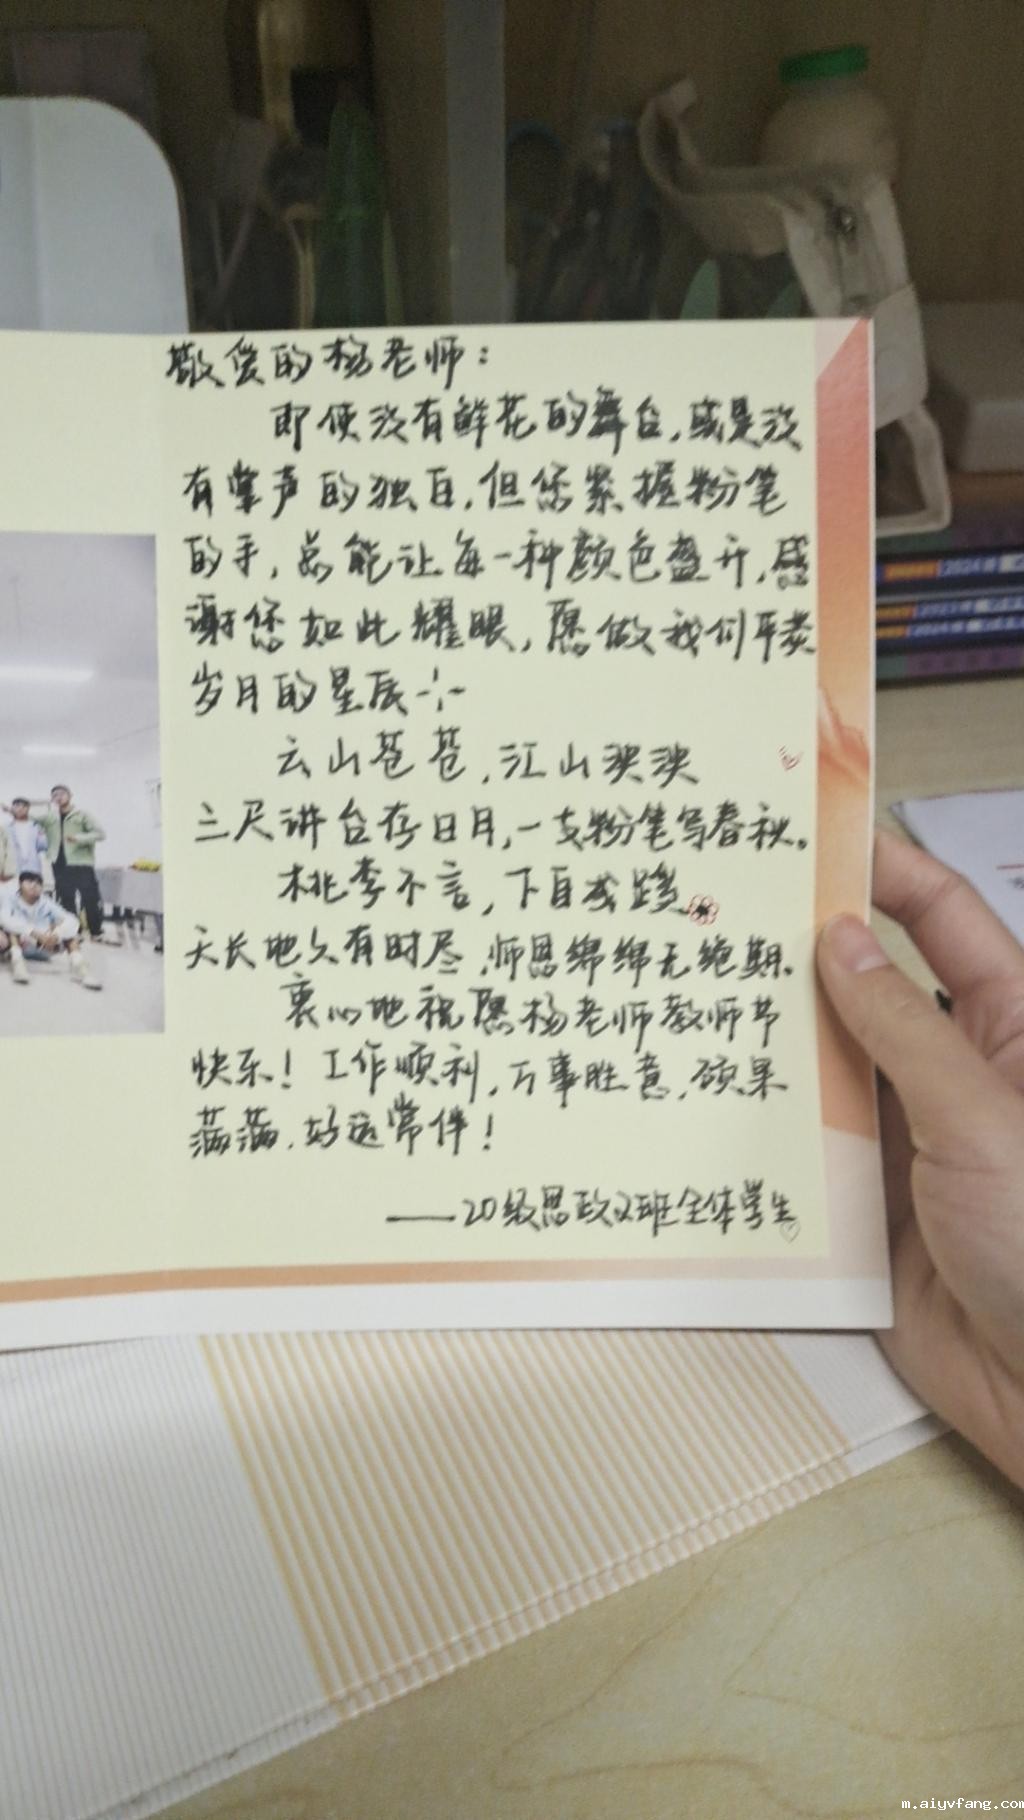 敬爱的杨老师:
即使没有鲜花的舞台,或是没
有掌声的独白,但您紧握粉笔
的手,总能让每一种颜色盛开,感
谢您如此耀眼,愿做我们平凡
岁月的星辰
云山苍苍,江山泱泱
三尺讲台存日月,一支粉笔写春秋。
桃李不言,下自成蹊
天长地久有时尽,师恩绵绵无绝期。
衷心地祝愿杨老师教师节
快乐!工作顺利,万事胜意,硕果
满满,好运常伴!
——20级思政2班全体学生
2024
m.aiyvfang.com